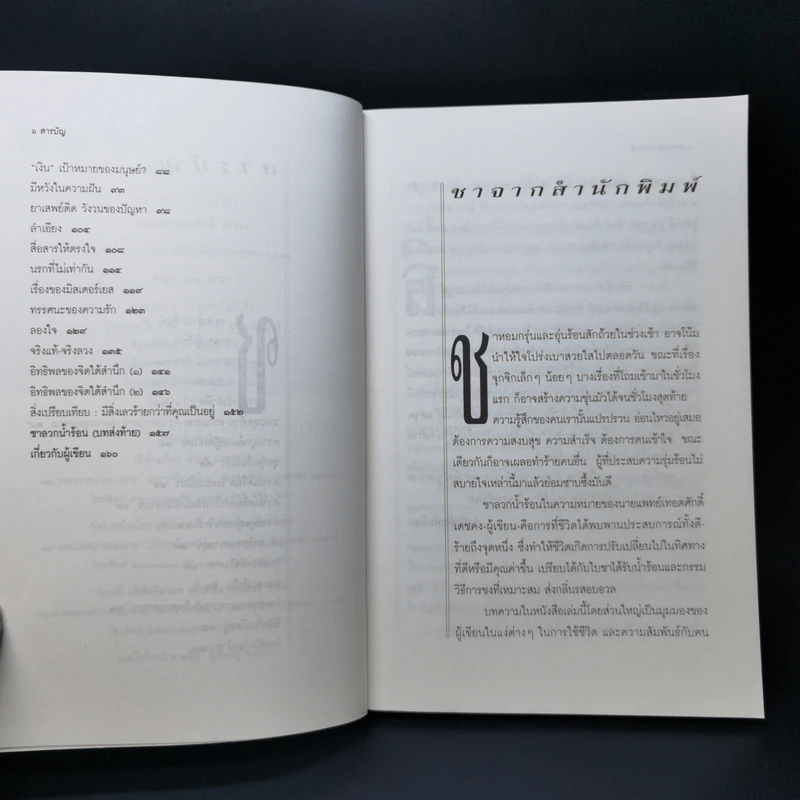 ๖ สารบัญ
"เงิน" เป้าหมายของมนุษย์? ๘๘
มีหวังในความฝัน ๙๓
ยาเสพย์ติด วังวนของปัญหา ๙๘
ลำเอียง ๑๐๔
สื่อสารให้ตรงใจ ๑๐๘
นรกที่ไม่เท่ากัน ๑๑๔
เรื่องของมิสเตอร์เยส ๑๑๙
ทรรศนะของความรัก ๑๒๓
ลองใจ ๑๒๙
จริงแท้-จริงลวง ๑๓๕
อิทธิพลของจิตใต้สำนึก (๑) ๑๔๑
อิทธิพลของจิตใต้สำนึก (๒) ๑๔๖
สิ่งเปรียบเทียบ : มีสิ่งเลวร้ายกว่าที่คุณเป็นอยู่ ๑๕๒
ชาลวกน้ำร้อน (บทส่งท้าย) ๑๕๗
เกี่ยวกับผู้เขียน ๑๖๐
ชาจากสำนักพิมพ์
ชาหอมกรุ่นและอุ่นร้อนสักถ้วยในช่วงเช้า อาจโน้ม
นำให้ใจโปร่งเบาสวยใสไปตลอดวัน ขณะที่เรื่อง
จุกจิกเล็กๆ น้อยๆ บางเรื่องที่โถมเข้ามาในชั่วโมง
แรก ก็อาจสร้างความขุ่นมัวได้จนชั่วโมงสุดท้าย
ความรู้สึกของคนเรานั้นแปรปรวน อ่อนไหวอยู่เสมอ
ต้องการความสงบสุข ความสำเร็จ ต้องการคนเข้าใจ ขณะ
เดียวกันก็อาจเผลอทำร้ายคนอื่น ผู้ที่ประสบความรุ่มร้อนไม่
สบายใจเหล่านี้มาแล้วย่อมซาบซึ้งมันดี
ชาลวกน้ำร้อนในความหมายของนายแพทย์เทอดศักดิ์
เดชคง-ผู้เขียน-คือการที่ชีวิตได้พบพานประสบการณ์ทั้งดี-
ร้ายถึงจุดหนึ่ง ซึ่งทำให้ชีวิตเกิดการปรับเปลี่ยนไปในทิศทาง
ที่ดีหรือมีคุณค่าขึ้น เปรียบได้กับใบชาได้รับน้ำร้อนและกรรม
วิธีการชงที่เหมาะสม ส่งกลิ่นรสอบอวล
บทความในหนังสือเล่มนี้โดยส่วนใหญ่เป็นมุมมองของ
ผู้เขียนในแง่ต่างๆ ในการใช้ชีวิต และความสัมพันธ์กับคน